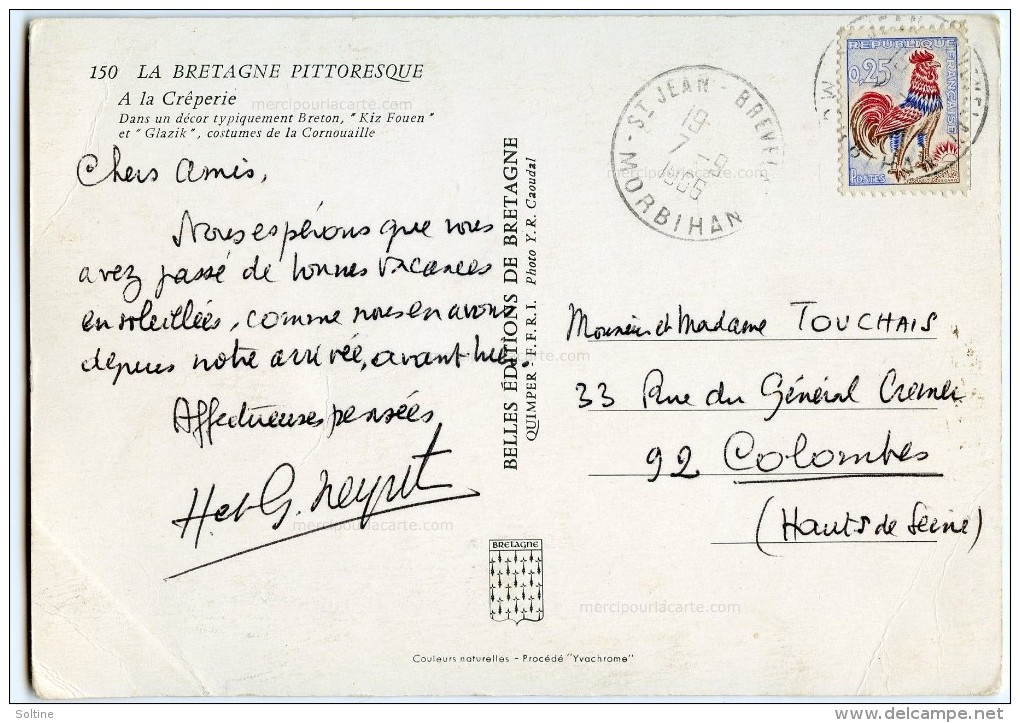 150 LA BRETAGNE PITTORESQUE
A la Crêperie
Dans un décor typiquement Breton, "Kiz Fouen"
et "Glazik", costumes de la Cornouaille
Chers amis,
Nous espérons que vous
avez passé de bonnes vacances
ensoleillées, comme nous en avons
depuis notre arrivée, avant hier.
Affectueuses pensées
H et G. Neyret
BELLES ÉDITIONS DE BRETAGNE
QUIMPER H.F.R.I. Photo Y.R. Caoudal
BRETAGNE
Couleurs naturelles - Procédé "Yvachrome"
ST JEAN - BREVEL
19
7 - 9
MORBIHAN
RÉPUBLIQUE FRANÇAISE
0,25
POSTES
Monsieur et Madame TOUCHAIS
33 Rue du Général Cremer
92 Colombes
(Hauts de Seine)
mercipourlacarte.com
mercipourlacarte.com
mercipourlacarte.com
mercipourlacarte.com
mercipourlacarte.com
mercipourlacarte.com
Soltine
delcampe.net